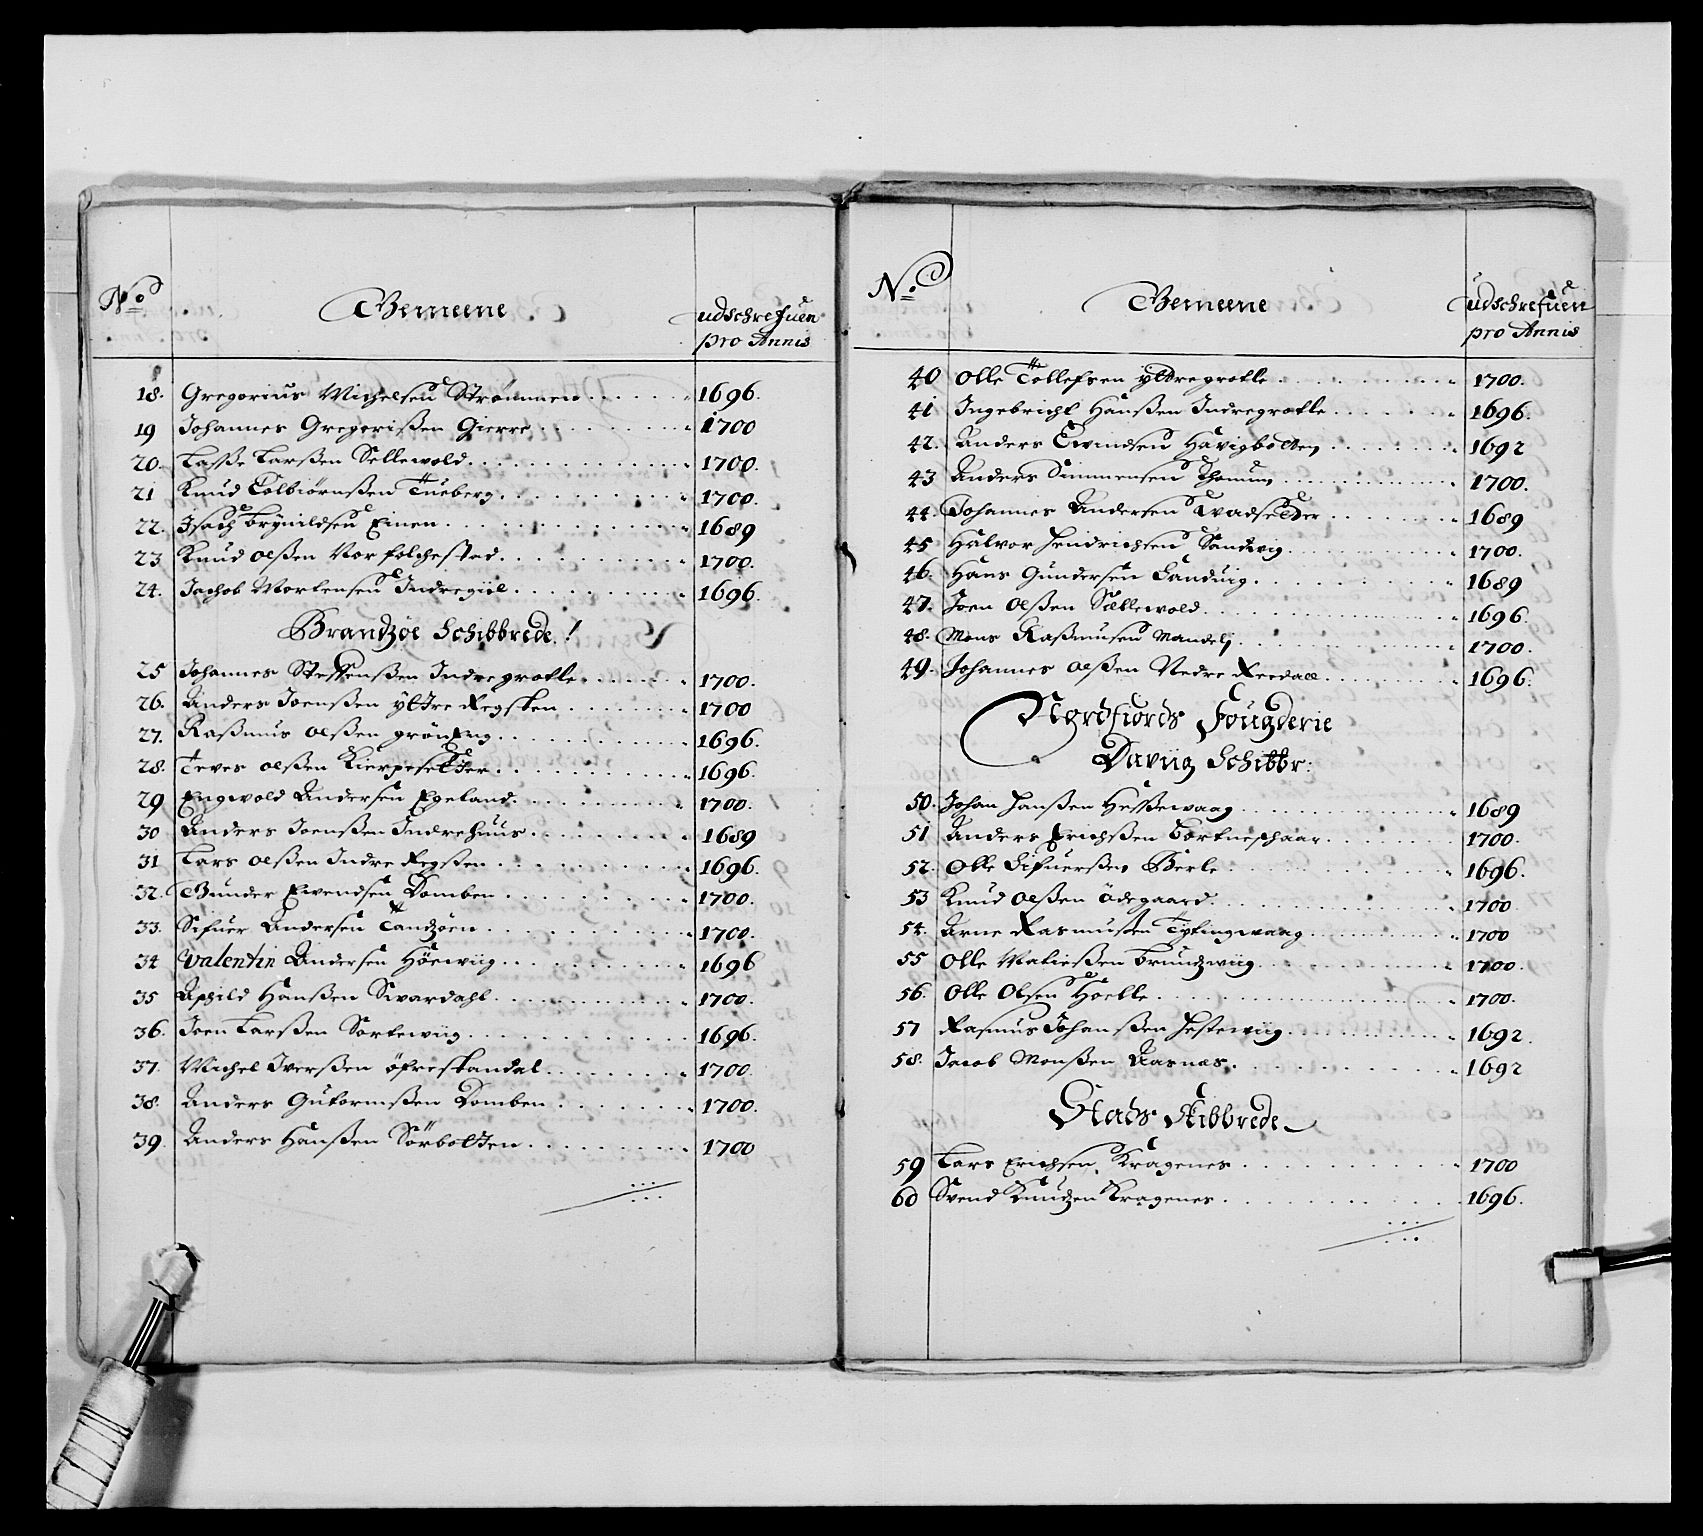 No Gemeene udschrefuen
pro Annis
18. Gregorius Michelsen Strömmen 1696.
19 Johannes Gregerißen Gierre 1700
20. Laße Larßen Sellewold 1700.
21 Knud Tolbiörnßen Tueberg 1700.
22. Isach Brynildsen Einen 1689
23 Knud Olßen Norfolchestad 1700.
24. Jachob Mortensen Indregiöl 1696.
Brandzöe Schibbrede!
25 Johannes Steffenßen Indregrotle 1700.
26. Anders Joenßen yttre Regsten 1700
27. Raßmus Olßen 1696.
28. Teves Olßen Kierpesetter 1696.
29 Engwold Andersen Egeland 1700.
30 Anders Joenßen Indrehuus 1689
31 Lars Olßen Indre Regsten 1696.
32. Gunder Ewendsen Domben 1700.
33. Sifuer Andersen Tandzöen 1700.
34 Valentin Andersen Höewiig 1696
35 Aschild Hanßen Svardahl 1700.
36. Joen Larßen Sortewiig 1696.
37. Michel Iverßen öfreskandal 1700.
38. Anders Gutormßen Domben 1700.
39. Anders Hanßen Sörbotten 1700
No Gemeene udschrefuen
pro Annis
40 Olle Tollefsen yttregrotle 1700.
41 Ingebricht Hanßen Indregrotle 1696.
42. Anders Evindsen Havigbotten 1692
43 Anders Simmensen 1700.
44. Johannes Andersen Quadsetter 1689
45 Halvor Hendrichsen Sandvig 1700.
46. Hans Gundersen Sanduig 1689
47. Joen Olßen Sættewold 1696.
48. Mons Raßmusen Mandelj 1700.
49. Johannes Olßen Nedre Reedall 1696.
Nordfiords Fougderie
Daviig Schibbr:
50. Johan Hanßen Heßewaag 1689
51 Anders Erichßen Bortneschaar 1700.
52. Olle Sifuerßen Berle 1696.
53 Knud Olßen Ödegaard 1700
54. Arne Rasmußen Tytingwaag 1700
55 Olle Matießen Brundzwiig 1700.
56. Olle Olsen Hoelle 1700.
57 Rasmus Johanßen Hestewiig 1692.
58. Jacob Monßen Aarnæs 1692
Stads Skibbrede
59 Lars Erichsen Kragenes 1700
60 Svend Knudzen Kragenes 1696.